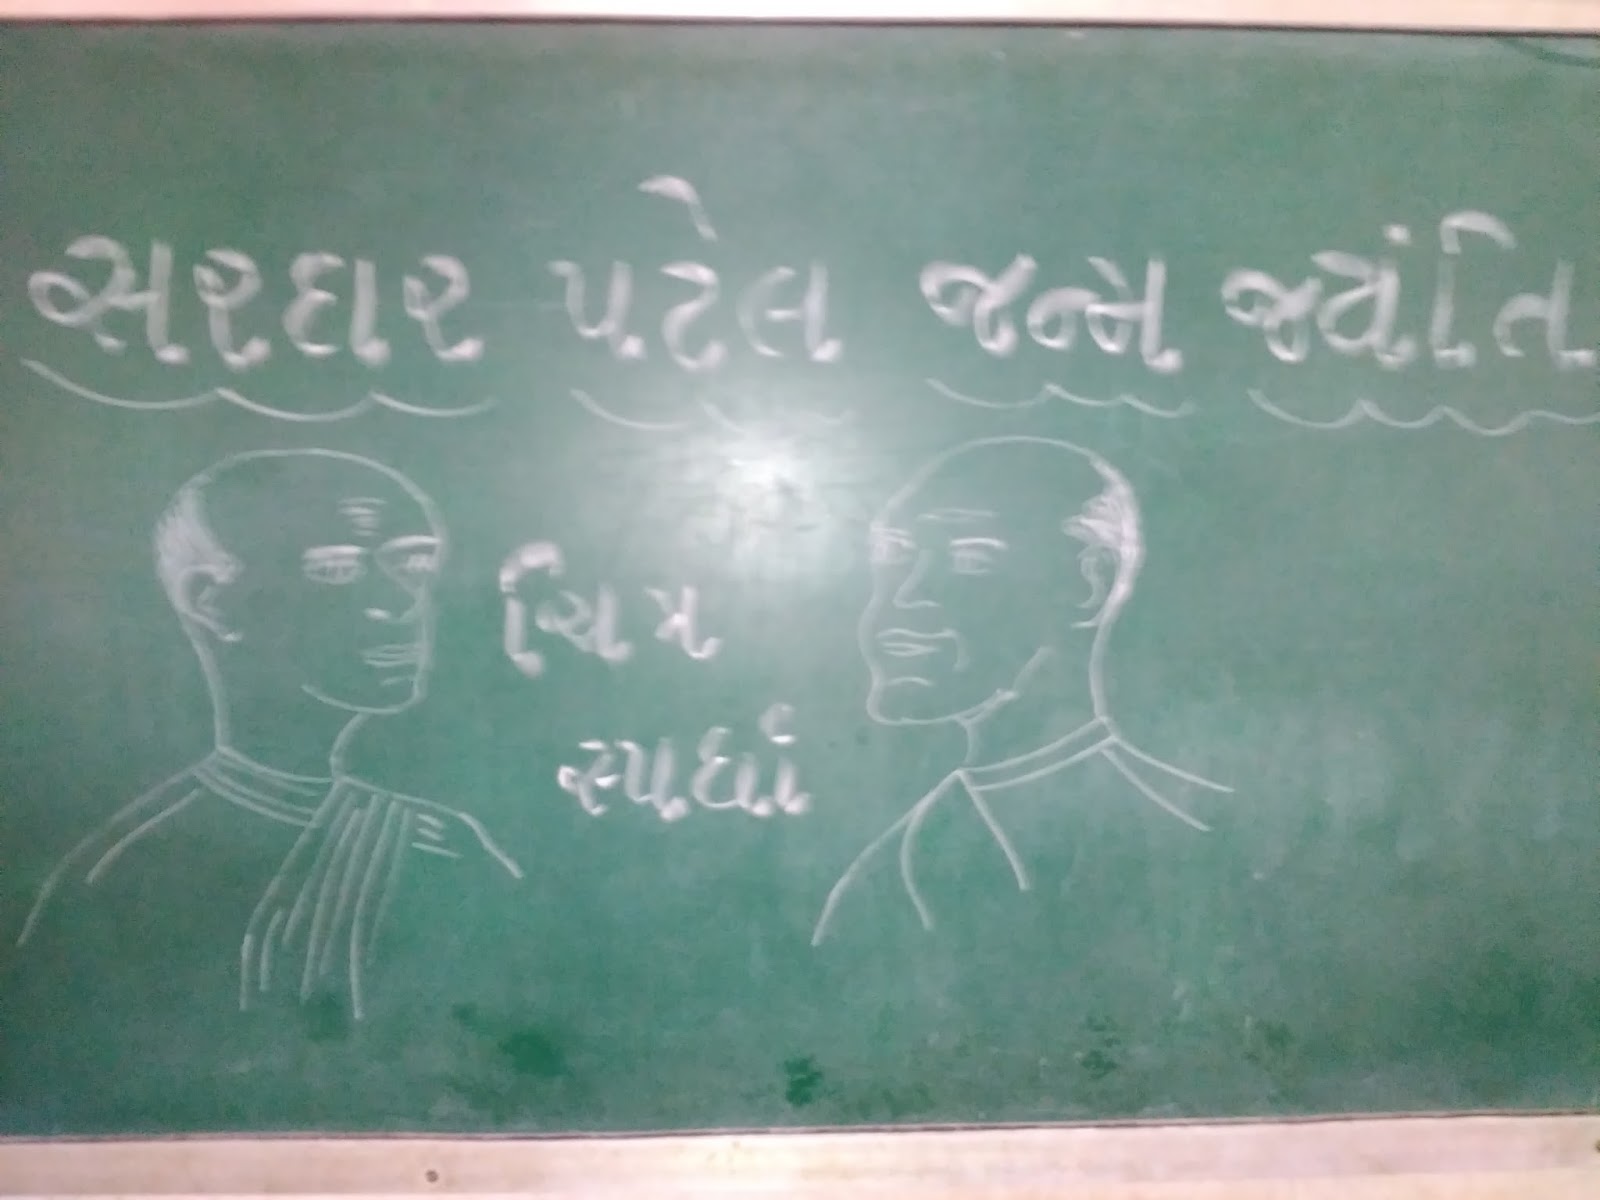 સરદાર પટેલ જન્મ જયંતિ
ચિત્ર
સ્પર્ધા